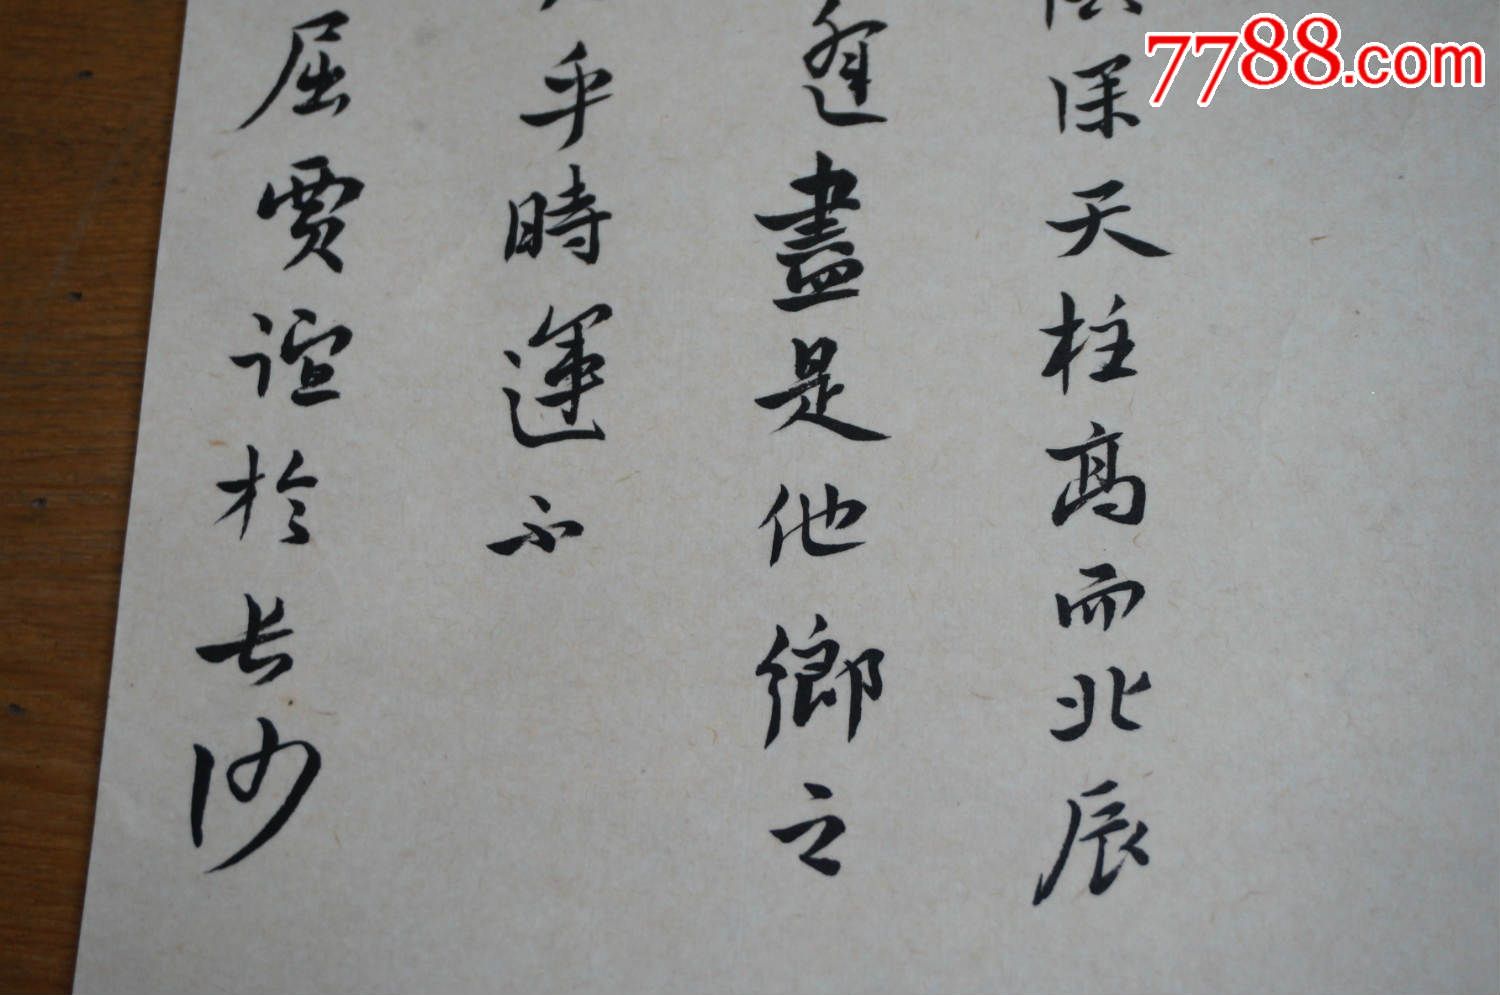 深天柱高而北辰
逢盡是他鄉之
乎時運不
屈賈誼於長沙
7788.com